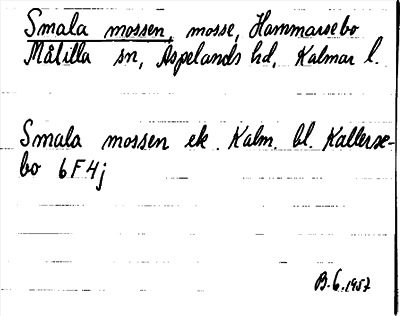 Smala mossen, mosse, Hammarsebo
Målilla sn, Aspelands hd, Kalmar l.
Smala mossen ek. Kalm. bl. Kallerse-
bo 6F4j
B.G. 1957